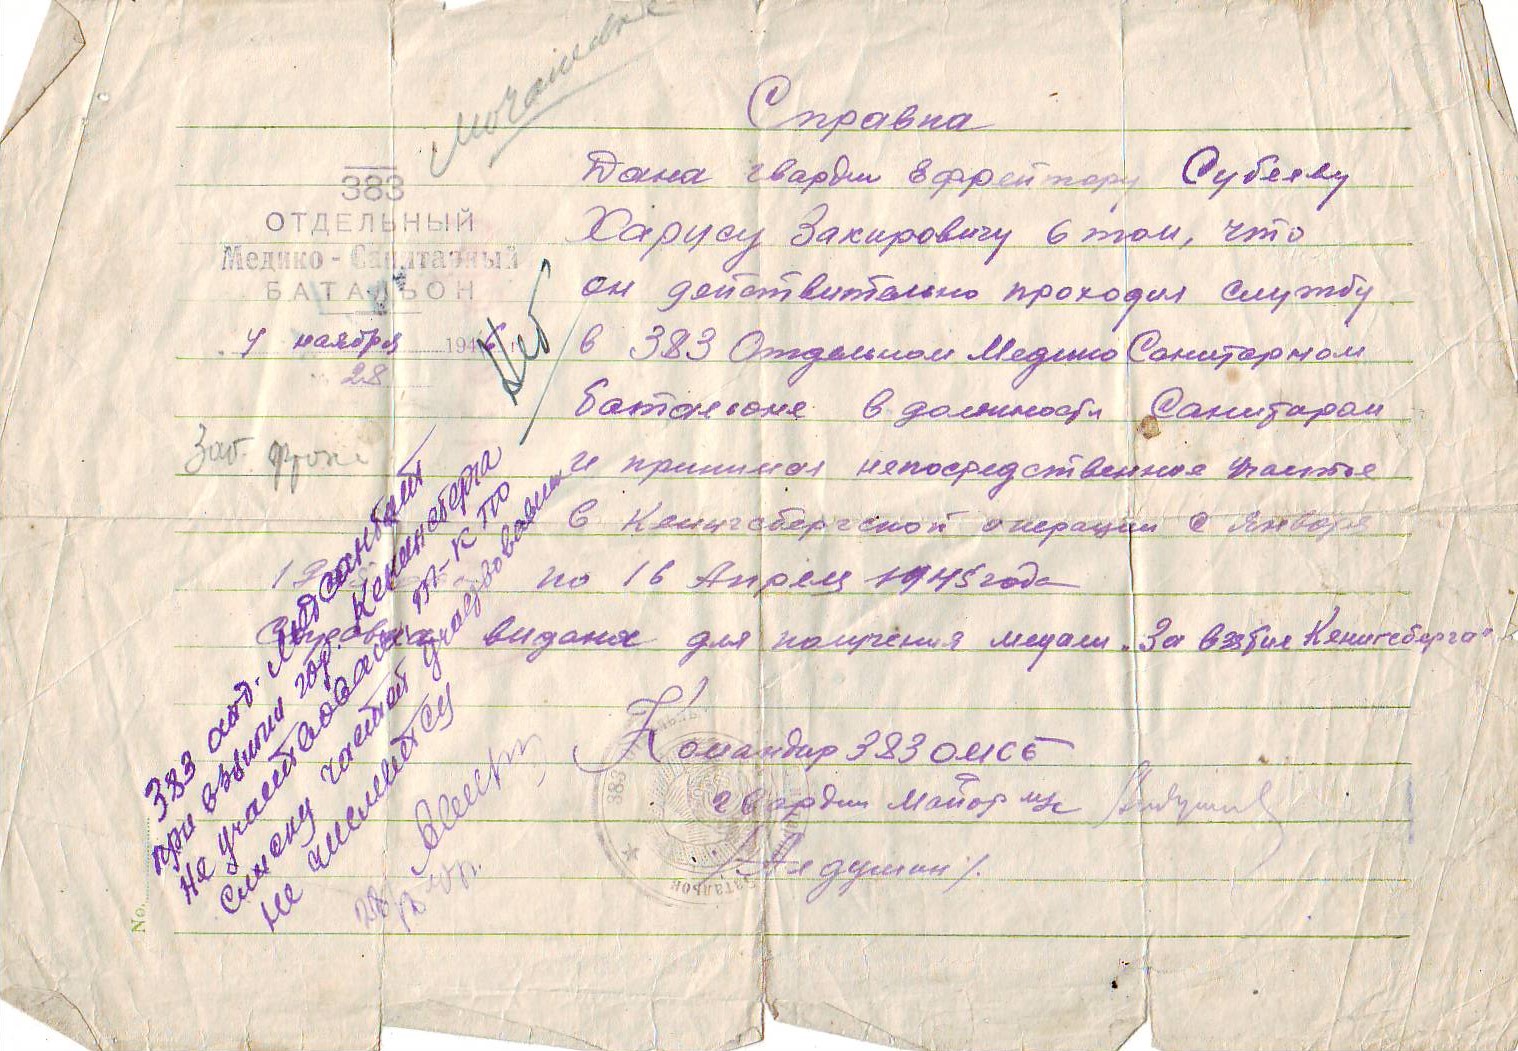 Справка
383
ОТДЕЛЬНЫЙ
Медико - Санитарный
БАТАЛЬОН
4 ноября 1946
28
Дана гвардии Ефрейтору Субееву
Харусу Закировичу в том, что
он действительно проходил службу
в 383 Отдельном Медико Санитарном
батальоне в должности Санитаром
и принимал непосредственное участье
в Кенигсбергской операции с Января
по 16 Апрель 1945 года
Справка видана для получения медали „За взятие Кенигсберга"
Командир 383 ОМСБ
гвардии майор м/с
/Ледушин/.
Нет
Заб. фронт
383 отд. Медсанбат
при взятии гор. Кенигсберга
не участвовал, т-к по
списку частей участвовавших
не числится
383
Батальон
No.